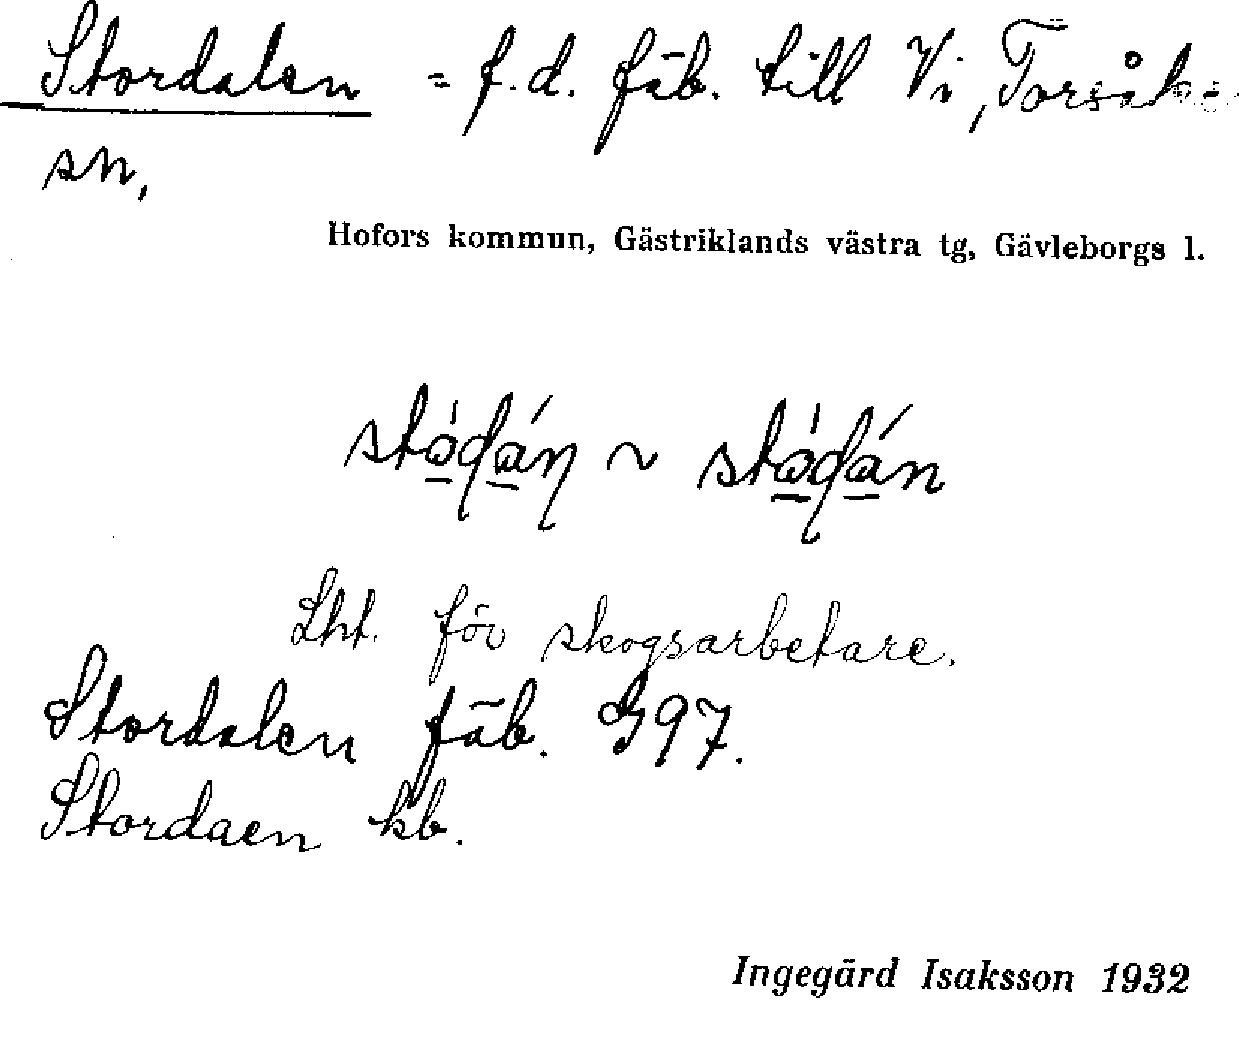 Stordalen = f.d. fäb. till Vi, Torsåkers
sn,
Hofors kommun, Gästriklands västra tg, Gävleborgs l.
Lht. för skogsarbetare.
Stordalen fäb. G97.
Stordaen kb.
Ingegärd Isaksson 1932